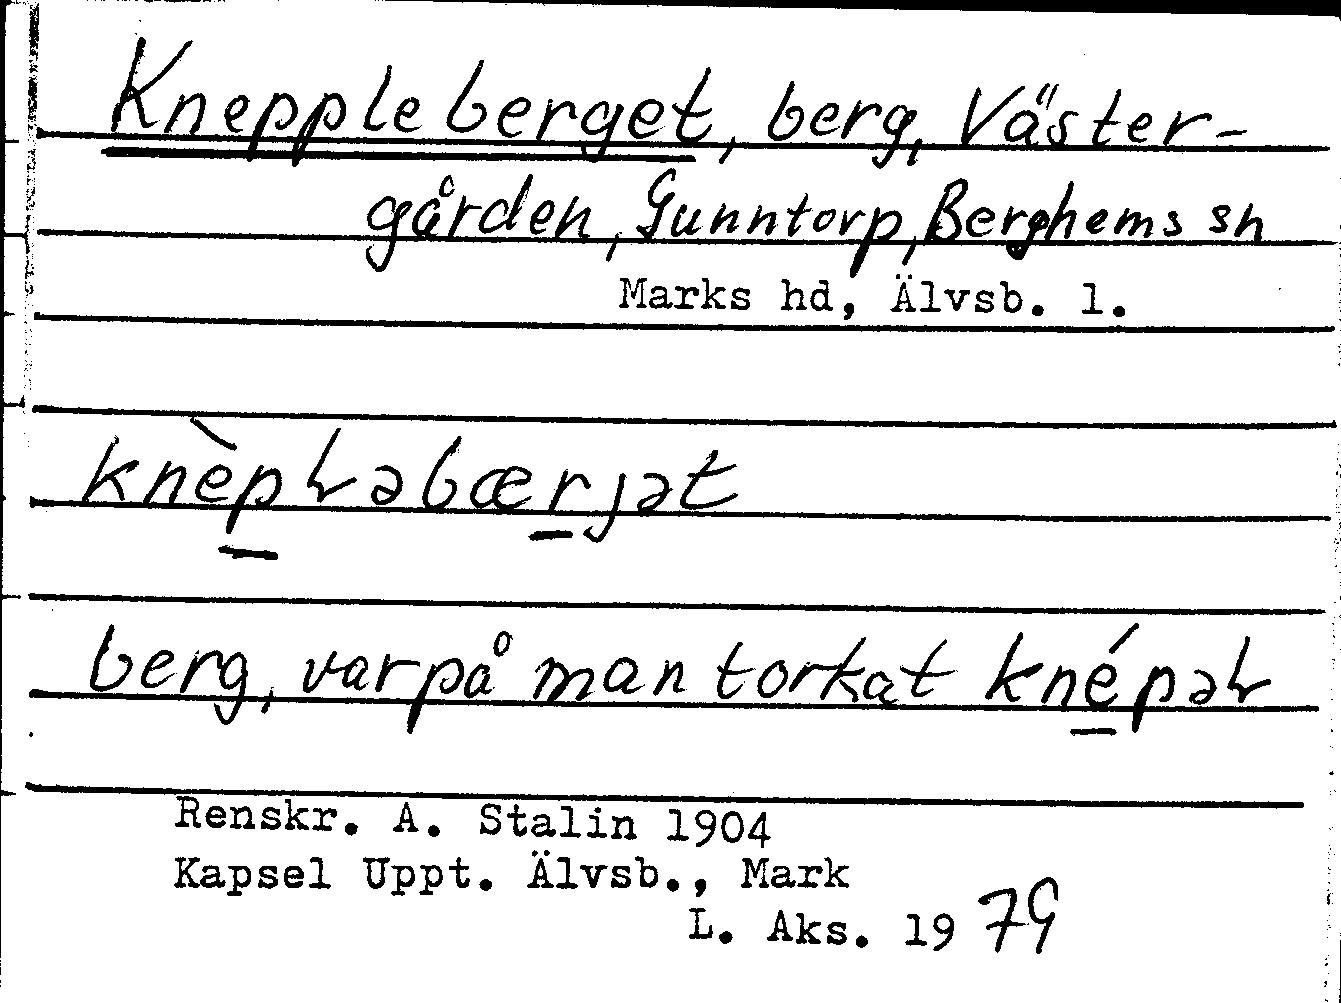 Kneppleberget, berg, Väster-
gården, Gunntorp, Berghems sn
Marks hd, Älvsb. l.
knèpɫəbærjət
berg, varpå man torkat knépəɫ
Renskr. A. Stalin 1904
Kapsel Uppt. Älvsb., Mark
L. Aks. 1979